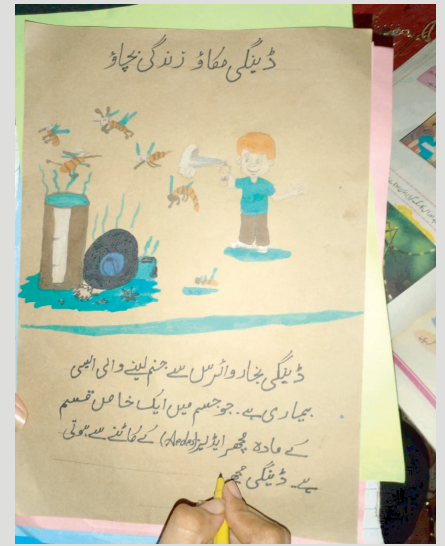 ڈینگی مکاؤ زندگی بچاؤ
ڈینگی بخار وائرس سے جنم لینے والی ایسی
بیماری ہے۔ جو جسم میں ایک خاص قسم
کے مادہ مچھر ایڈیز (Aedes) کے کاٹنے سے ہوتی
ہے۔ ڈینگی مچھر